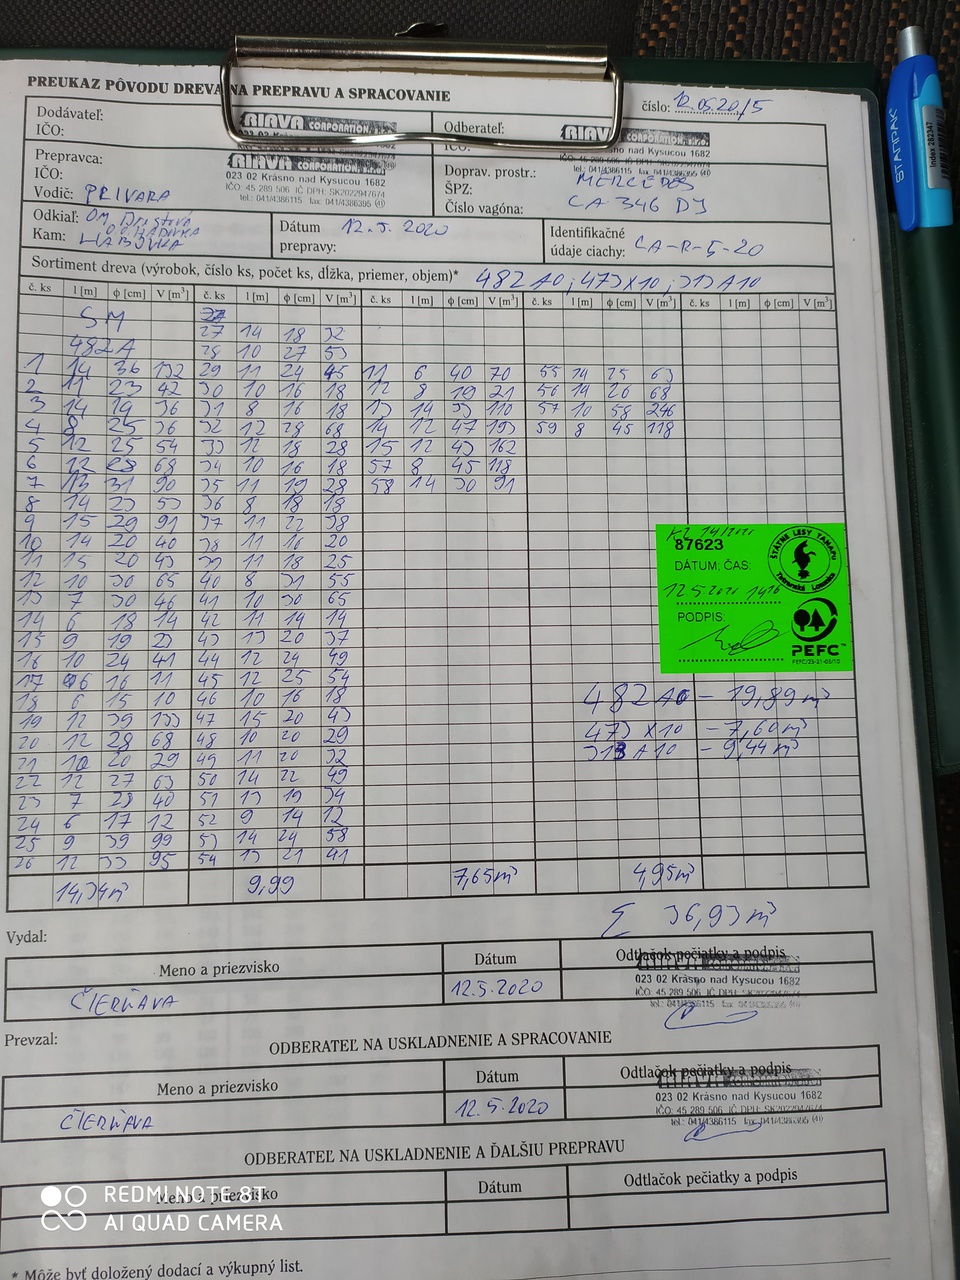 PREUKAZ PÔVODU DREVA NA PREPRAVU A SPRACOVANIE
číslo: 12.05.20/5
Dodávateľ:
IČO:
RIAVA CORPORATION
Odberateľ:
RIAVA
023 02 Krásno nad Kysucou 1682
Prepravca:
IČO:
Vodič: PRIVARA
RIAVA CORPORATION
023 02 Krásno nad Kysucou 1682
IČO: 45 289 506 IČ DPH: SK2022947674
tel.: 041/4386115 fax: 041/4386395
Doprav. prostr.: MERCEDES
ŠPZ:
Číslo vagóna: CA 346 DJ
Odkiaľ: OM
Kam: HABOVKA
Dátum prepravy: 12.5.2020
Identifikačné údaje ciachy: CA-R-5-20
Sortiment dreva (výrobok, číslo ks, počet ks, dĺžka, priemer, objem)* 482 A0; 473 X10; 313 A10
č. ks l [m] ϕ [cm] V [m³] č. ks l [m] ϕ [cm] V [m³] č. ks l [m] ϕ [cm] V [m³] č. ks l [m] ϕ [cm] V [m³] č. ks l [m] ϕ [cm] V [m³]
SM
27 14 18 32
482A 28 10 27 53
1 14 36 132 29 11 24 45 11 6 40 70 55 14 25 63
2 11 23 42 30 10 16 18 12 8 19 21 56 14 26 68
3 14 19 36 31 8 16 18 13 14 33 110 57 10 58 246
4 8 25 36 32 12 28 68 14 12 47 193 59 8 45 118
5 12 25 54 33 12 18 28 15 12 43 162
6 12 28 68 34 10 16 18 57 8 45 118
7 13 31 90 35 11 19 28 58 14 30 91
8 14 23 53 36 8 18 18
9 15 29 91 37 11 22 38
10 14 20 40 38 11 16 20
11 15 20 43 39 11 18 25
12 10 30 65 40 8 31 55
13 7 30 46 41 10 30 65
14 6 18 14 42 11 14 14
15 9 19 23 43 13 20 37
16 10 24 41 44 12 24 49
17 6 16 11 45 12 25 54
18 6 15 10 46 10 16 18
19 12 39 133 47 15 20 43
20 12 28 68 48 10 20 29
21 10 20 29 49 11 20 32
22 12 27 63 50 14 22 49
23 7 28 40 51 13 19 34
24 6 17 12 52 9 14 12
25 9 39 99 53 14 24 58
26 12 33 95 54 13 21 41
14,34m³ 9,99 7,65m³ 4,95m³
87623
ŠTÁTNE LESY TANAPU
Tatranská Lomnica
DÁTUM; ČAS:
12.5.2020 14 16
PODPIS:
PEFC™
482 A0 – 19,89 m³
473 X10 – 7,60 m³
313 A10 – 9,44 m³
Σ 36,93 m³
Vydal:
Meno a priezvisko Dátum Odtlačok pečiatky a podpis
ČIERŇAVA 12.5.2020
RIAVA CORPORATION
023 02 Krásno nad Kysucou 1682
IČO: 45 289 506 IČ DPH: SK2022947674
Prevzal:
ODBERATEĽ NA USKLADNENIE A SPRACOVANIE
Meno a priezvisko Dátum Odtlačok pečiatky a podpis
ČIERŇAVA 12.5.2020
RIAVA CORPORATION
023 02 Krásno nad Kysucou 1682
IČO: 45 289 506 IČ DPH: SK2022947674
tel.: 041/4386115
ODBERATEĽ NA USKLADNENIE A ĎALŠIU PREPRAVU
Meno a priezvisko Dátum Odtlačok pečiatky a podpis
* Môže byť doložený dodací a výkupný list.
STAEDPAK
Index 282347
REDMI NOTE 8T
AI QUAD CAMERA